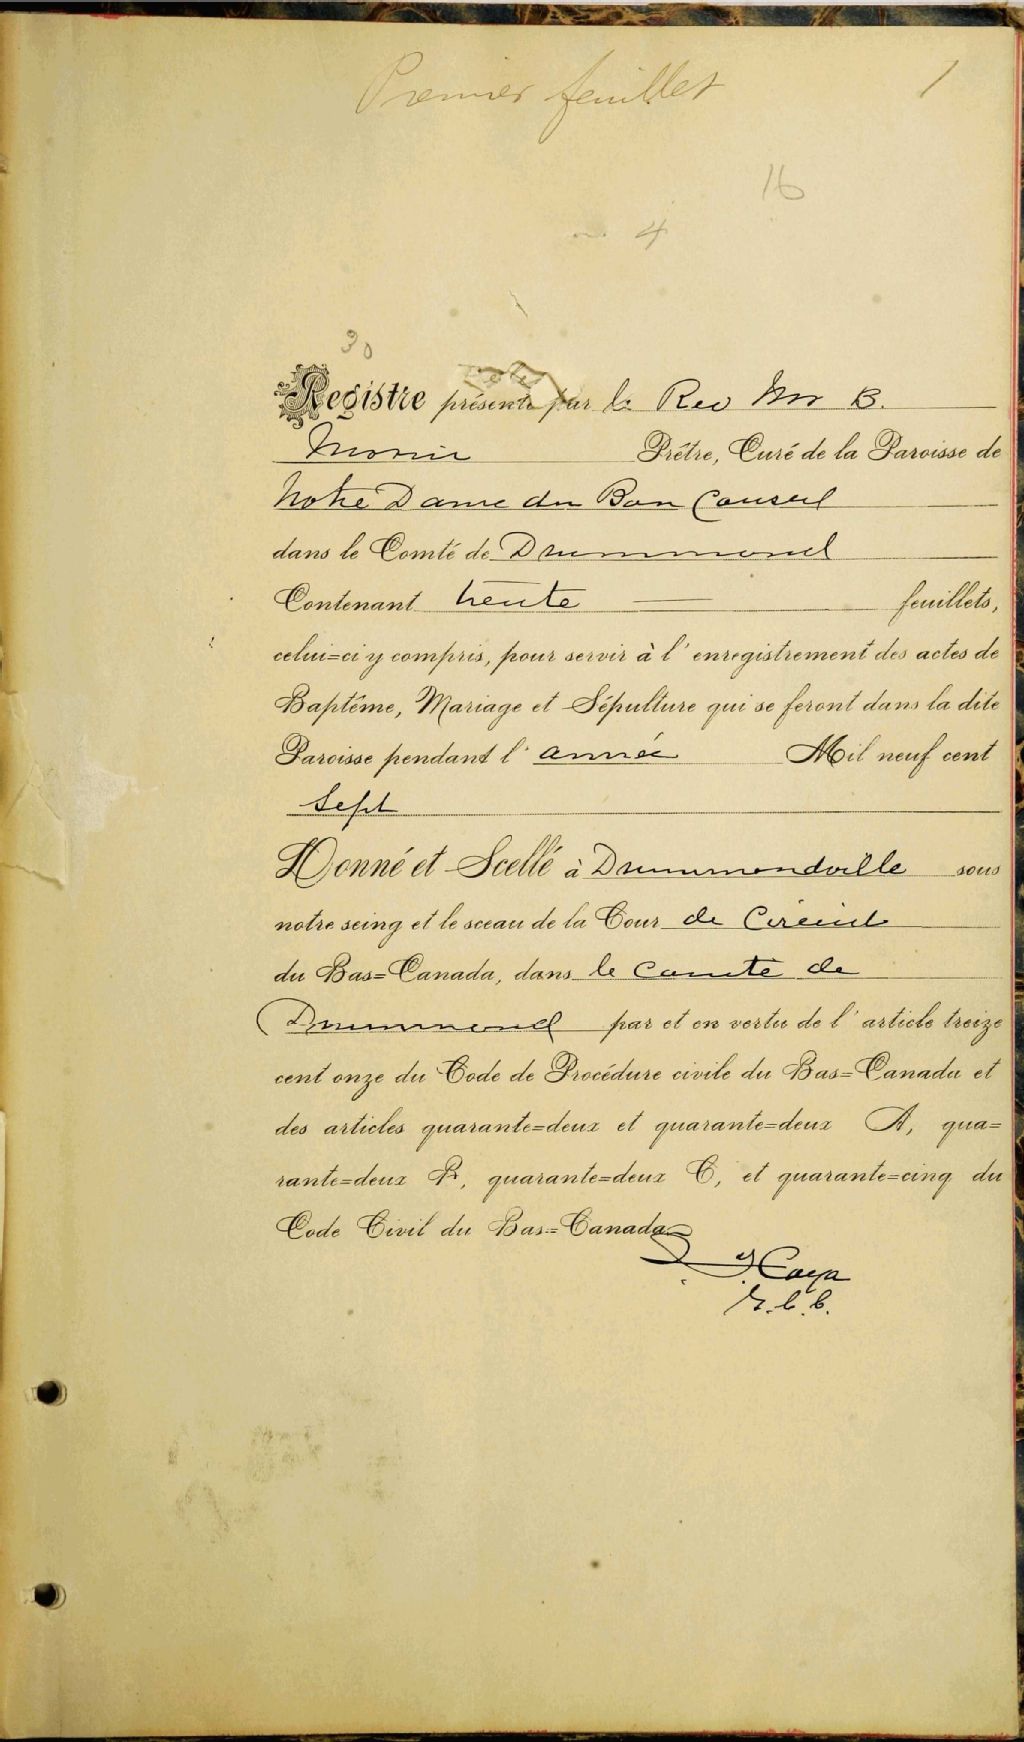 Premier feuillet 1
16
4
30
Registre présenté par le Rev Mr B.
Morin Prêtre, Curé de la Paroisse de
Notre Dame du Bon Conseil
dans le Comté de Drummond
Contenant trente feuillets,
celui=ci y compris, pour servir à l'enregistrement des actes de
Baptême, Mariage et Sépulture qui se feront dans la dite
Paroisse pendant l'année Mil neuf cent
Sept
Donné et Scellé à Drummondville sous
notre seing et le sceau de la Cour de Circuit
du Bas=Canada, dans le comté de
Drummond par et en vertu de l'article treize
cent onze du Code de Procédure civile du Bas=Canada et
des articles quarante=deux et quarante=deux A, qua=
rante=deux B, quarante=deux C, et quarante=cinq du
Code Civil du Bas=Canada